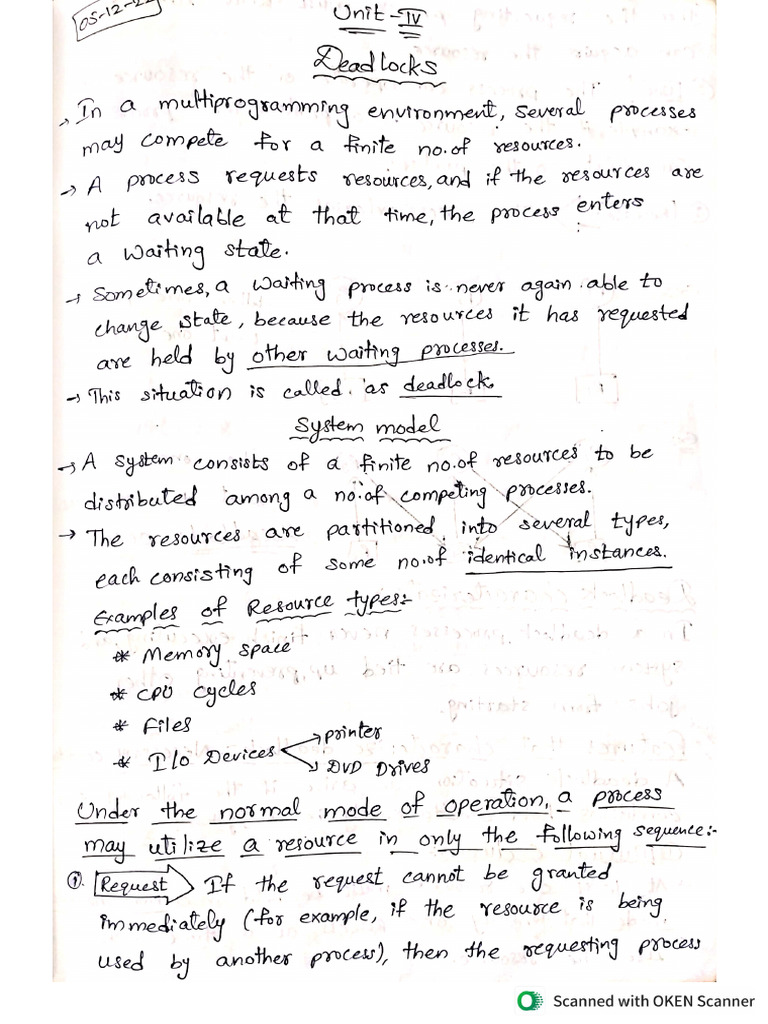 05-12-22
Unit - IV
Deadlocks
→ In a multiprogramming environment, several processes
may compete for a finite no.of resources.
→ A process requests resources, and if the resources are
not available at that time, the process enters
a waiting state.
→ Sometimes, a waiting process is never again able to
change state, because the resources it has requested
are held by other waiting processes.
→ This situation is called as deadlock.
System model
→ A system consists of a finite no.of resources to be
distributed among a no.of competing processes.
→ The resources are partitioned into several types,
each consisting of some no.of identical instances.
Examples of Resource types:-
* Memory space
* CPU cycles
* Files
* I/O Devices → printer
→ DVD Drives
Under the normal mode of operation, a process
may utilize a resource in only the following sequence:-
①. Request If the request cannot be granted
immediately (for example, if the resource is being
used by another process), then the requesting process
Scanned with OKEN Scanner